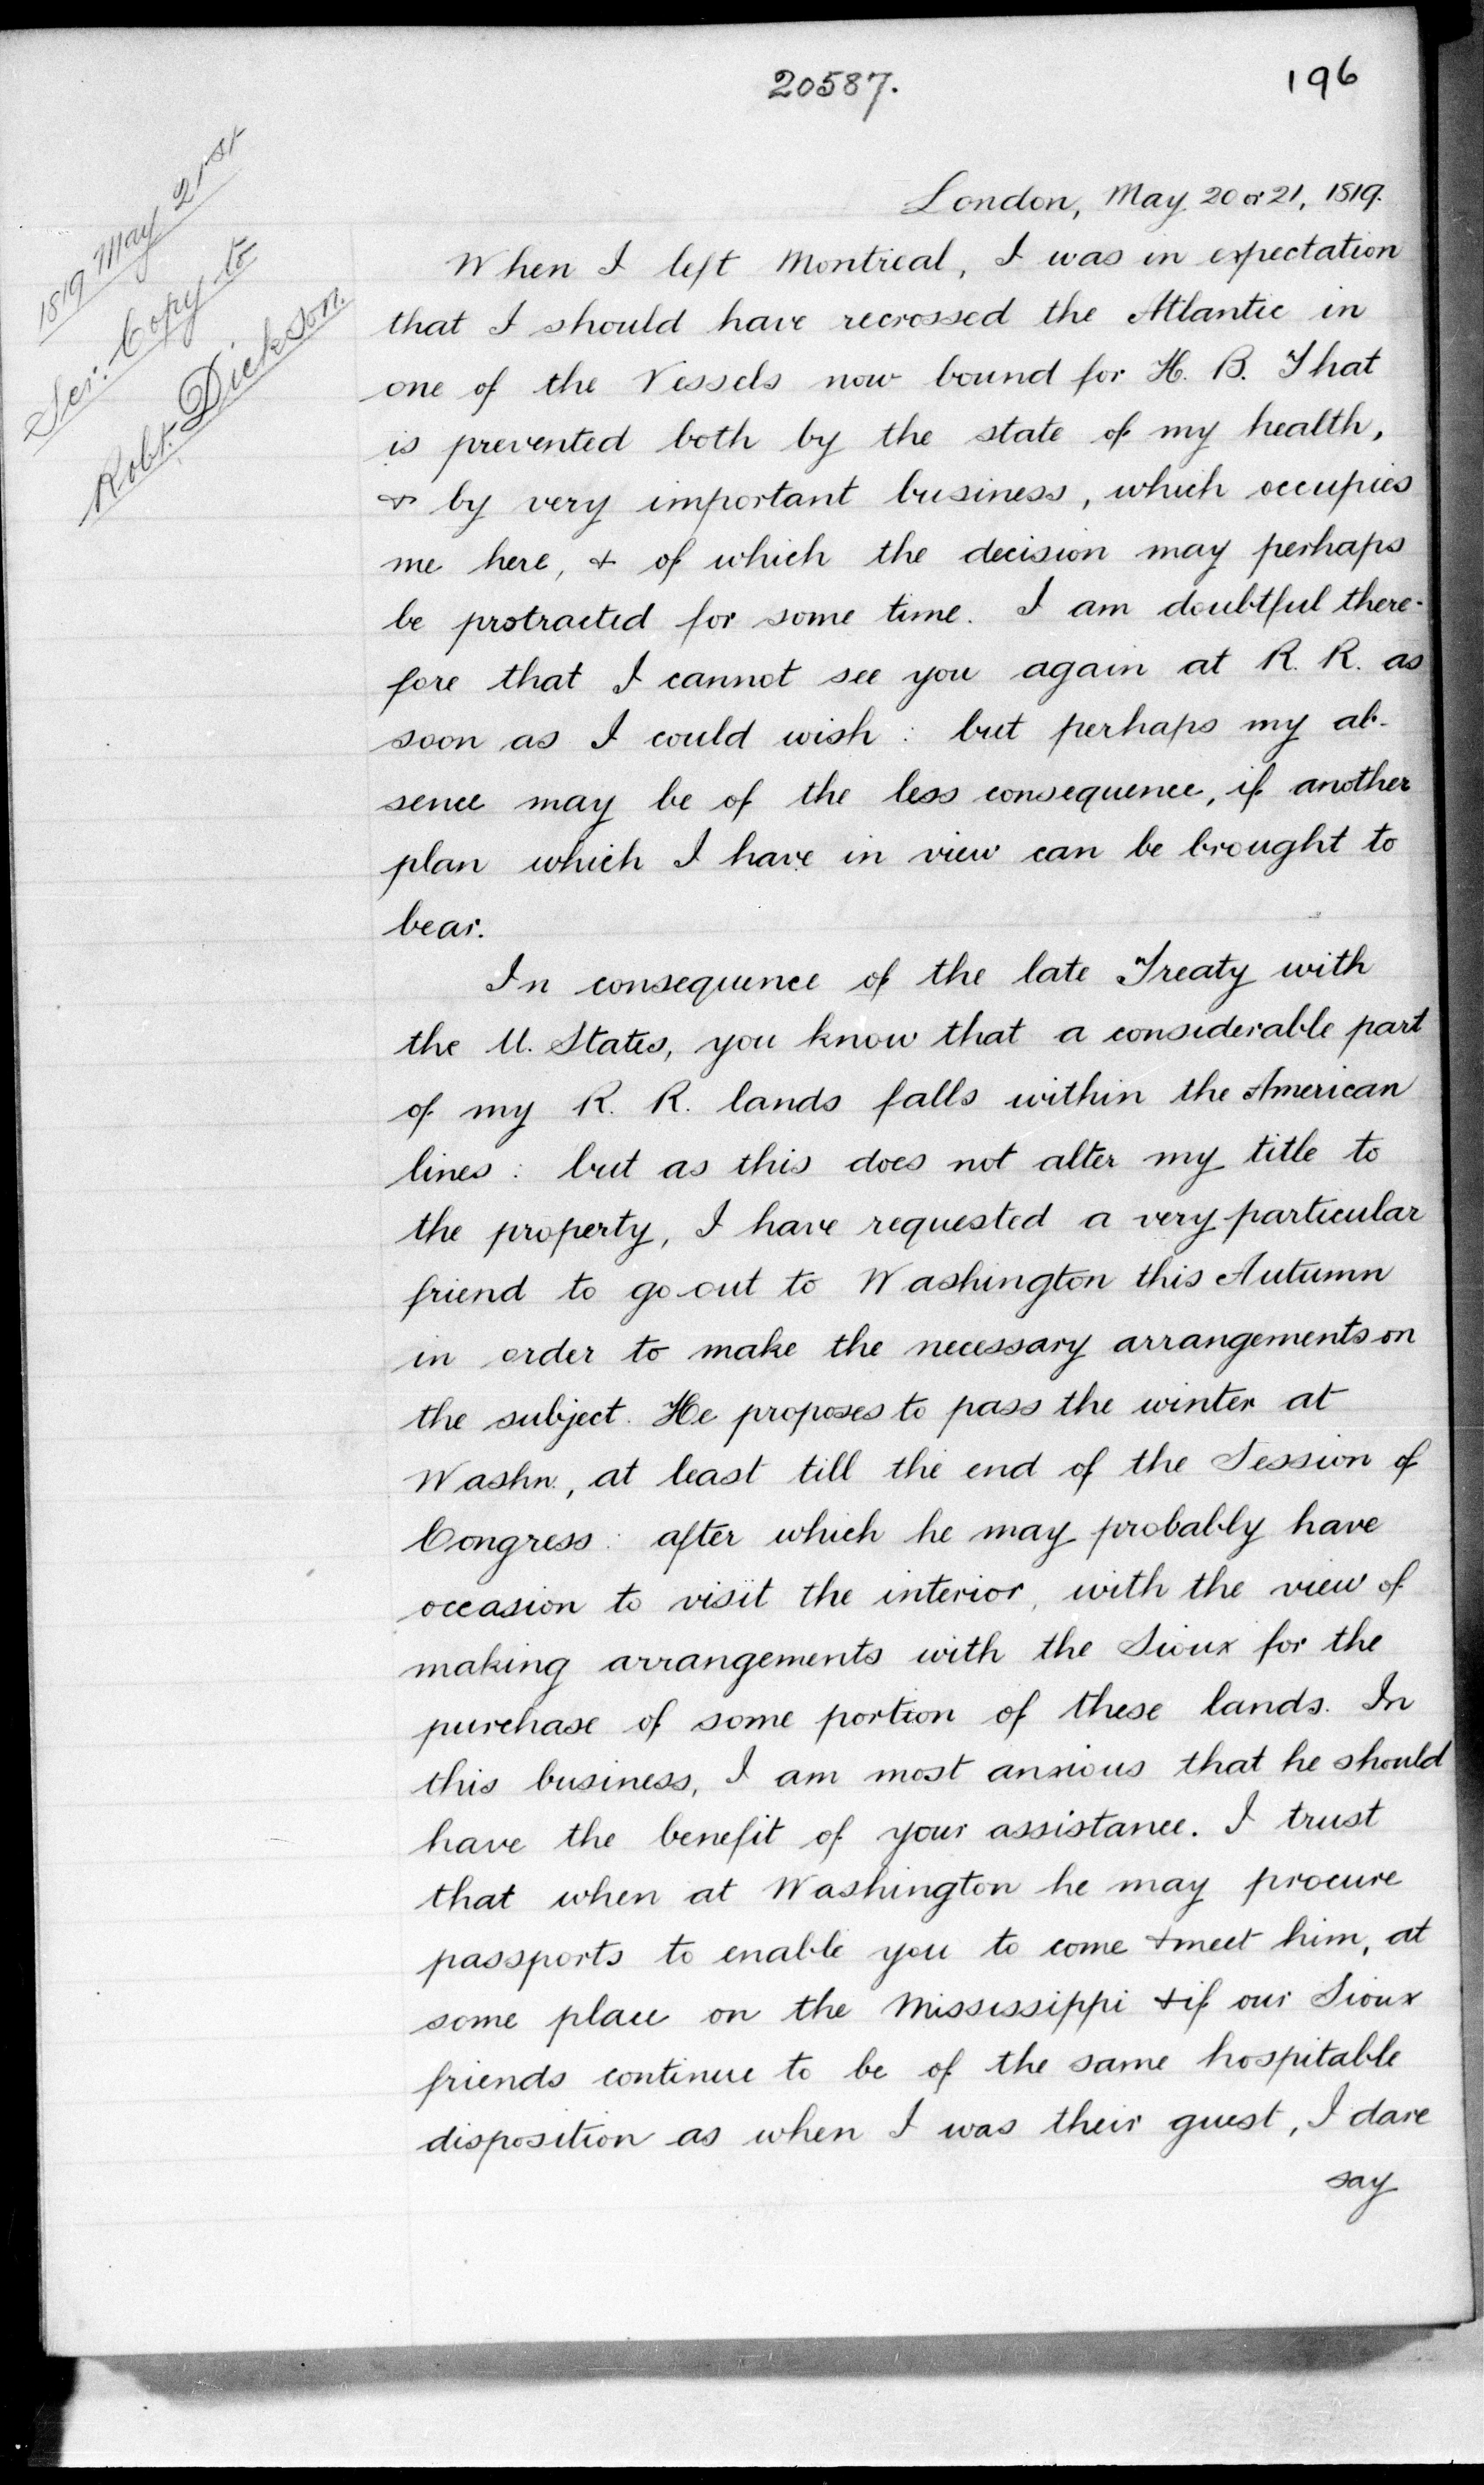 20587.
196
1819 May 21st
Scr. Copy to
Robt. Dickson.
London, May 20 or 21, 1819.
When I left Montreal, I was in expectation
that I should have recrossed the Atlantic in
one of the Vessels now bound for H. B. That
is prevented both by the state of my health,
& by very important business, which occupies
me here, & of which the decision may perhaps
be protracted for some time. I am doubtful there-
fore that I cannot see you again at R. R. as
soon as I could wish : but perhaps my ab-
sence may be of the less consequence, if another
plan which I have in view can be brought to
bear.
In consequence of the late Treaty with
the U. States, you know that a considerable part
of my R. R. lands falls within the American
lines : but as this does not alter my title to
the property, I have requested a very particular
friend to go out to Washington this Autumn
in order to make the necessary arrangements on
the subject. He proposes to pass the winter at
Washn., at least till the end of the Session of
Congress : after which he may probably have
occasion to visit the interior, with the view of
making arrangements with the Sioux for the
purchase of some portion of these lands. In
this business, I am most anxious that he should
have the benefit of your assistance. I trust
that when at Washington he may procure
passports to enable you to come & meet him, at
some place on the Mississippi & if our Sioux
friends continue to be of the same hospitable
disposition as when I was their guest, I dare
say